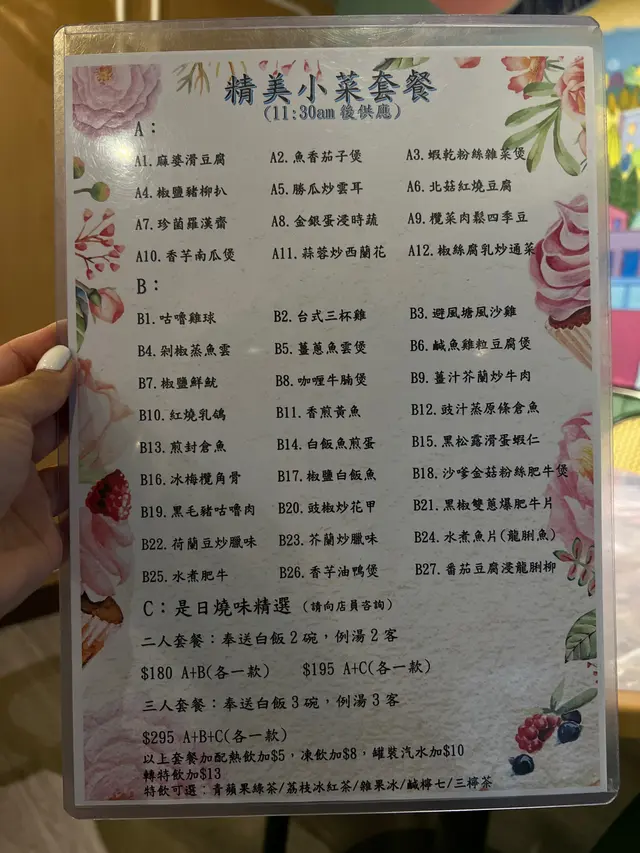 精美小菜套餐
(11:30am後供應)
A：
A1.麻婆滑豆腐 A2.魚香茄子煲 A3.蝦乾粉絲雜菜煲
A4.椒鹽豬柳扒 A5.勝瓜炒雲耳 A6.北菇紅燒豆腐
A7.珍菌羅漢齋 A8.金銀蛋浸時蔬 A9.欖菜肉鬆四季豆
A10.香芋南瓜煲 A11.蒜蓉炒西蘭花 A12.椒絲腐乳炒通菜
B：
B1.咕嚕雞球 B2.台式三杯雞 B3.避風塘風沙雞
B4.剁椒蒸魚雲 B5.薑蔥魚雲煲 B6.鹹魚雞粒豆腐煲
B7.椒鹽鮮魷 B8.咖喱牛腩煲 B9.薑汁芥蘭炒牛肉
B10.紅燒乳鴿 B11.香煎黃魚 B12.豉汁蒸原條倉魚
B13.煎封倉魚 B14.白飯魚煎蛋 B15.黑松露滑蛋蝦仁
B16.冰梅欖角骨 B17.椒鹽白飯魚 B18.沙嗲金菇粉絲肥牛煲
B19.黑毛豬咕嚕肉 B20.豉椒炒花甲 B21.黑椒雙蔥爆肥牛片
B22.荷蘭豆炒臘味 B23.芥蘭炒臘味 B24.水煮魚片(龍脷魚)
B25.水煮肥牛 B26.香芋油鴨煲 B27.番茄豆腐浸龍脷柳
C：是日燒味精選 (請向店員咨詢)
二人套餐：奉送白飯2碗，例湯2客
$180 A+B(各一款) $195 A+C(各一款)
三人套餐：奉送白飯3碗，例湯3客
$295 A+B+C(各一款)
以上套餐加配熱飲加$5，凍飲加$8，罐裝汽水加$10
轉特飲加$13
特飲可選：青蘋果綠茶/荔枝冰紅茶/雜果冰/鹹檸七/三檸茶